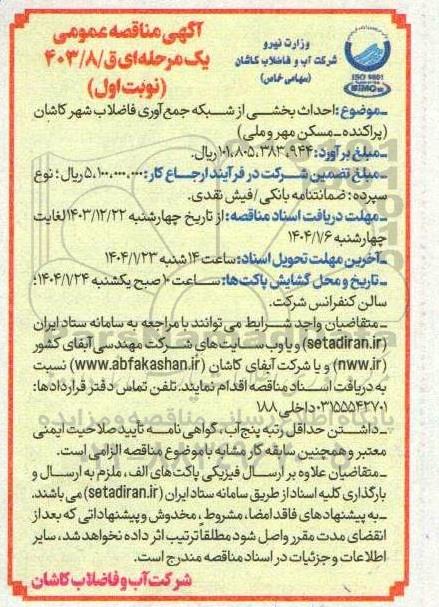 آگهی مناقصه عمومی
یک مرحله‌ای ق/۴۰۳/۸
(نوبت اول)
وزارت نیرو
شرکت آب و فاضلاب کاشان
(سهامی خاص)
ISO 9001
SIMQ
ـ موضوع: احداث بخشی از شبکه جمع‌آوری فاضلاب شهر کاشان
(پراکنده ـ مسکن مهر و ملی)
ـ مبلغ برآورد: ۱۰۱،۸۰۵،۳۸۳،۹۴۴ ریال.
ـ مبلغ تضمین شرکت در فرآیند ارجاع کار: ۵،۱۰۰،۰۰۰،۰۰۰ ریال؛ نوع
سپرده: ضمانتنامه بانکی / فیش نقدی.
ـ مهلت دریافت اسناد مناقصه: از تاریخ چهارشنبه ۱۴۰۳/۱۲/۲۲ لغایت
چهارشنبه ۱۴۰۴/۱/۶
ـ آخرین مهلت تحویل اسناد: ساعت ۱۴ شنبه ۱۴۰۴/۱/۲۳
ـ تاریخ و محل گشایش پاکت‌ها: ساعت ۱۰ صبح یکشنبه ۱۴۰۴/۱/۲۴؛
سالن کنفرانس شرکت.
ـ متقاضیان واجد شرایط می توانند با مراجعه به سامانه ستاد ایران
(setadiran.ir) و یا وب سایت‌های شرکت مهندسی آبفای کشور
(nww.ir) و یا شرکت آبفای کاشان (www.abfakashan.ir) نسبت
به دریافت اسناد مناقصه اقدام نمایند. تلفن تماس دفتر قراردادها:
۰۳۱۵۵۵۴۲۷۰۱ داخلی ۱۸۸
ـ داشتن حداقل رتبه پنج آب، گواهی نامه تأیید صلاحیت ایمنی
معتبر و همچنین سابقه کار مشابه با موضوع مناقصه الزامی است.
ـ متقاضیان علاوه بر ارسال فیزیکی پاکت‌های الف، ملزم به ارسال و
بارگذاری کلیه اسناد از طریق سامانه ستاد ایران (setadiran.ir) می باشند.
ـ به پیشنهادهای فاقد امضا، مشروط، مخدوش و پیشنهاداتی که بعد از
انقضای مدت مقرر واصل شود مطلقاً ترتیب اثر داده نخواهد شد، سایر
اطلاعات و جزئیات در اسناد مناقصه مندرج است.
شرکت آب و فاضلاب کاشان